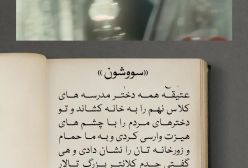 «سووشون»
عتیقه همه دختر مدرسه های
کلاس نهم را به خانه کشاند و تو
دخترهای مردم را با چشم های
هیزت وارسی کردی و به ما حمام
و زورخانه تان را نشان دادی و هی
گفتی جدم کلانتر بزرگ تالار